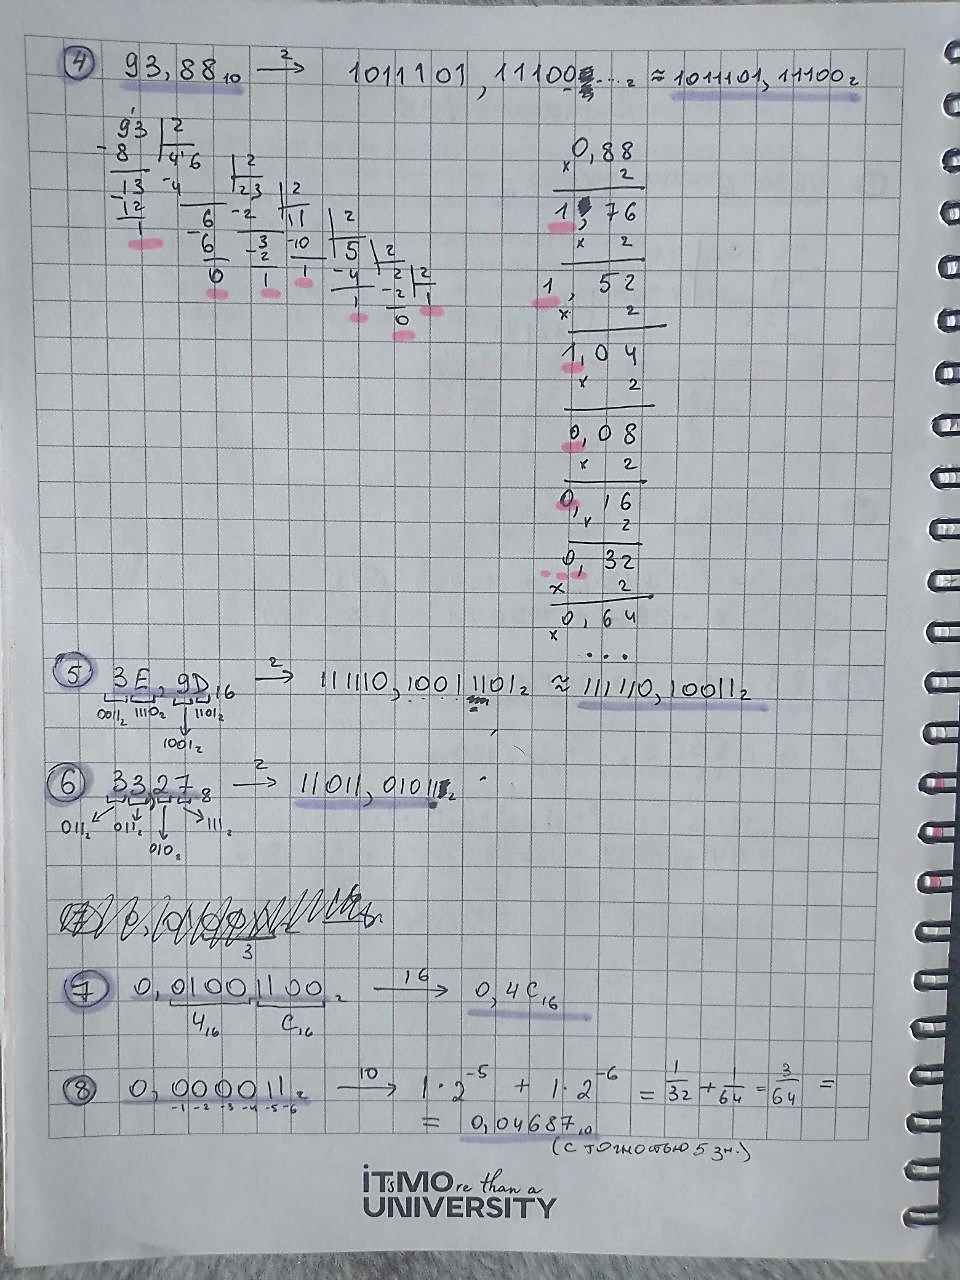 4 93,88₁₀ →² 1011101,11100...₂ ≈ 1011101,11100₂
93 | 2
- 8 | 46 | 2
13 - 4 | 23 | 2
- 12 6 - 2 | 11 | 2
1 - 6 3 - 10 | 5 | 2
0 - 2 1 - 4 | 2 | 2
1 1 - 2 | 1
0
0,88
× 2
1,76
× 2
1,52
× 2
1,04
× 2
0,08
× 2
0,16
× 2
0,32
× 2
× 0,64
...
5 3E,9D₁₆ →² 111110,10011101₂ ≈ 111110,10011₂
0011₂ 1110₂ 1101₂
1001₂
6 33,27₈ →² 11011,01011₂
011₂ 011₂ 111₂
010₂
3
7 0,01001100₂ →¹⁶ 0,4C₁₆
4₁₆ C₁₆
8 0,000011₂ →¹⁰ 1·2⁻⁵ + 1·2⁻⁶ = 1/32 + 1/64 = 3/64 =
-1 -2 -3 -4 -5 -6
= 0,04687₁₀
(с точностью 5 зн.)
iT'sMOre than a
UNIVERSITY